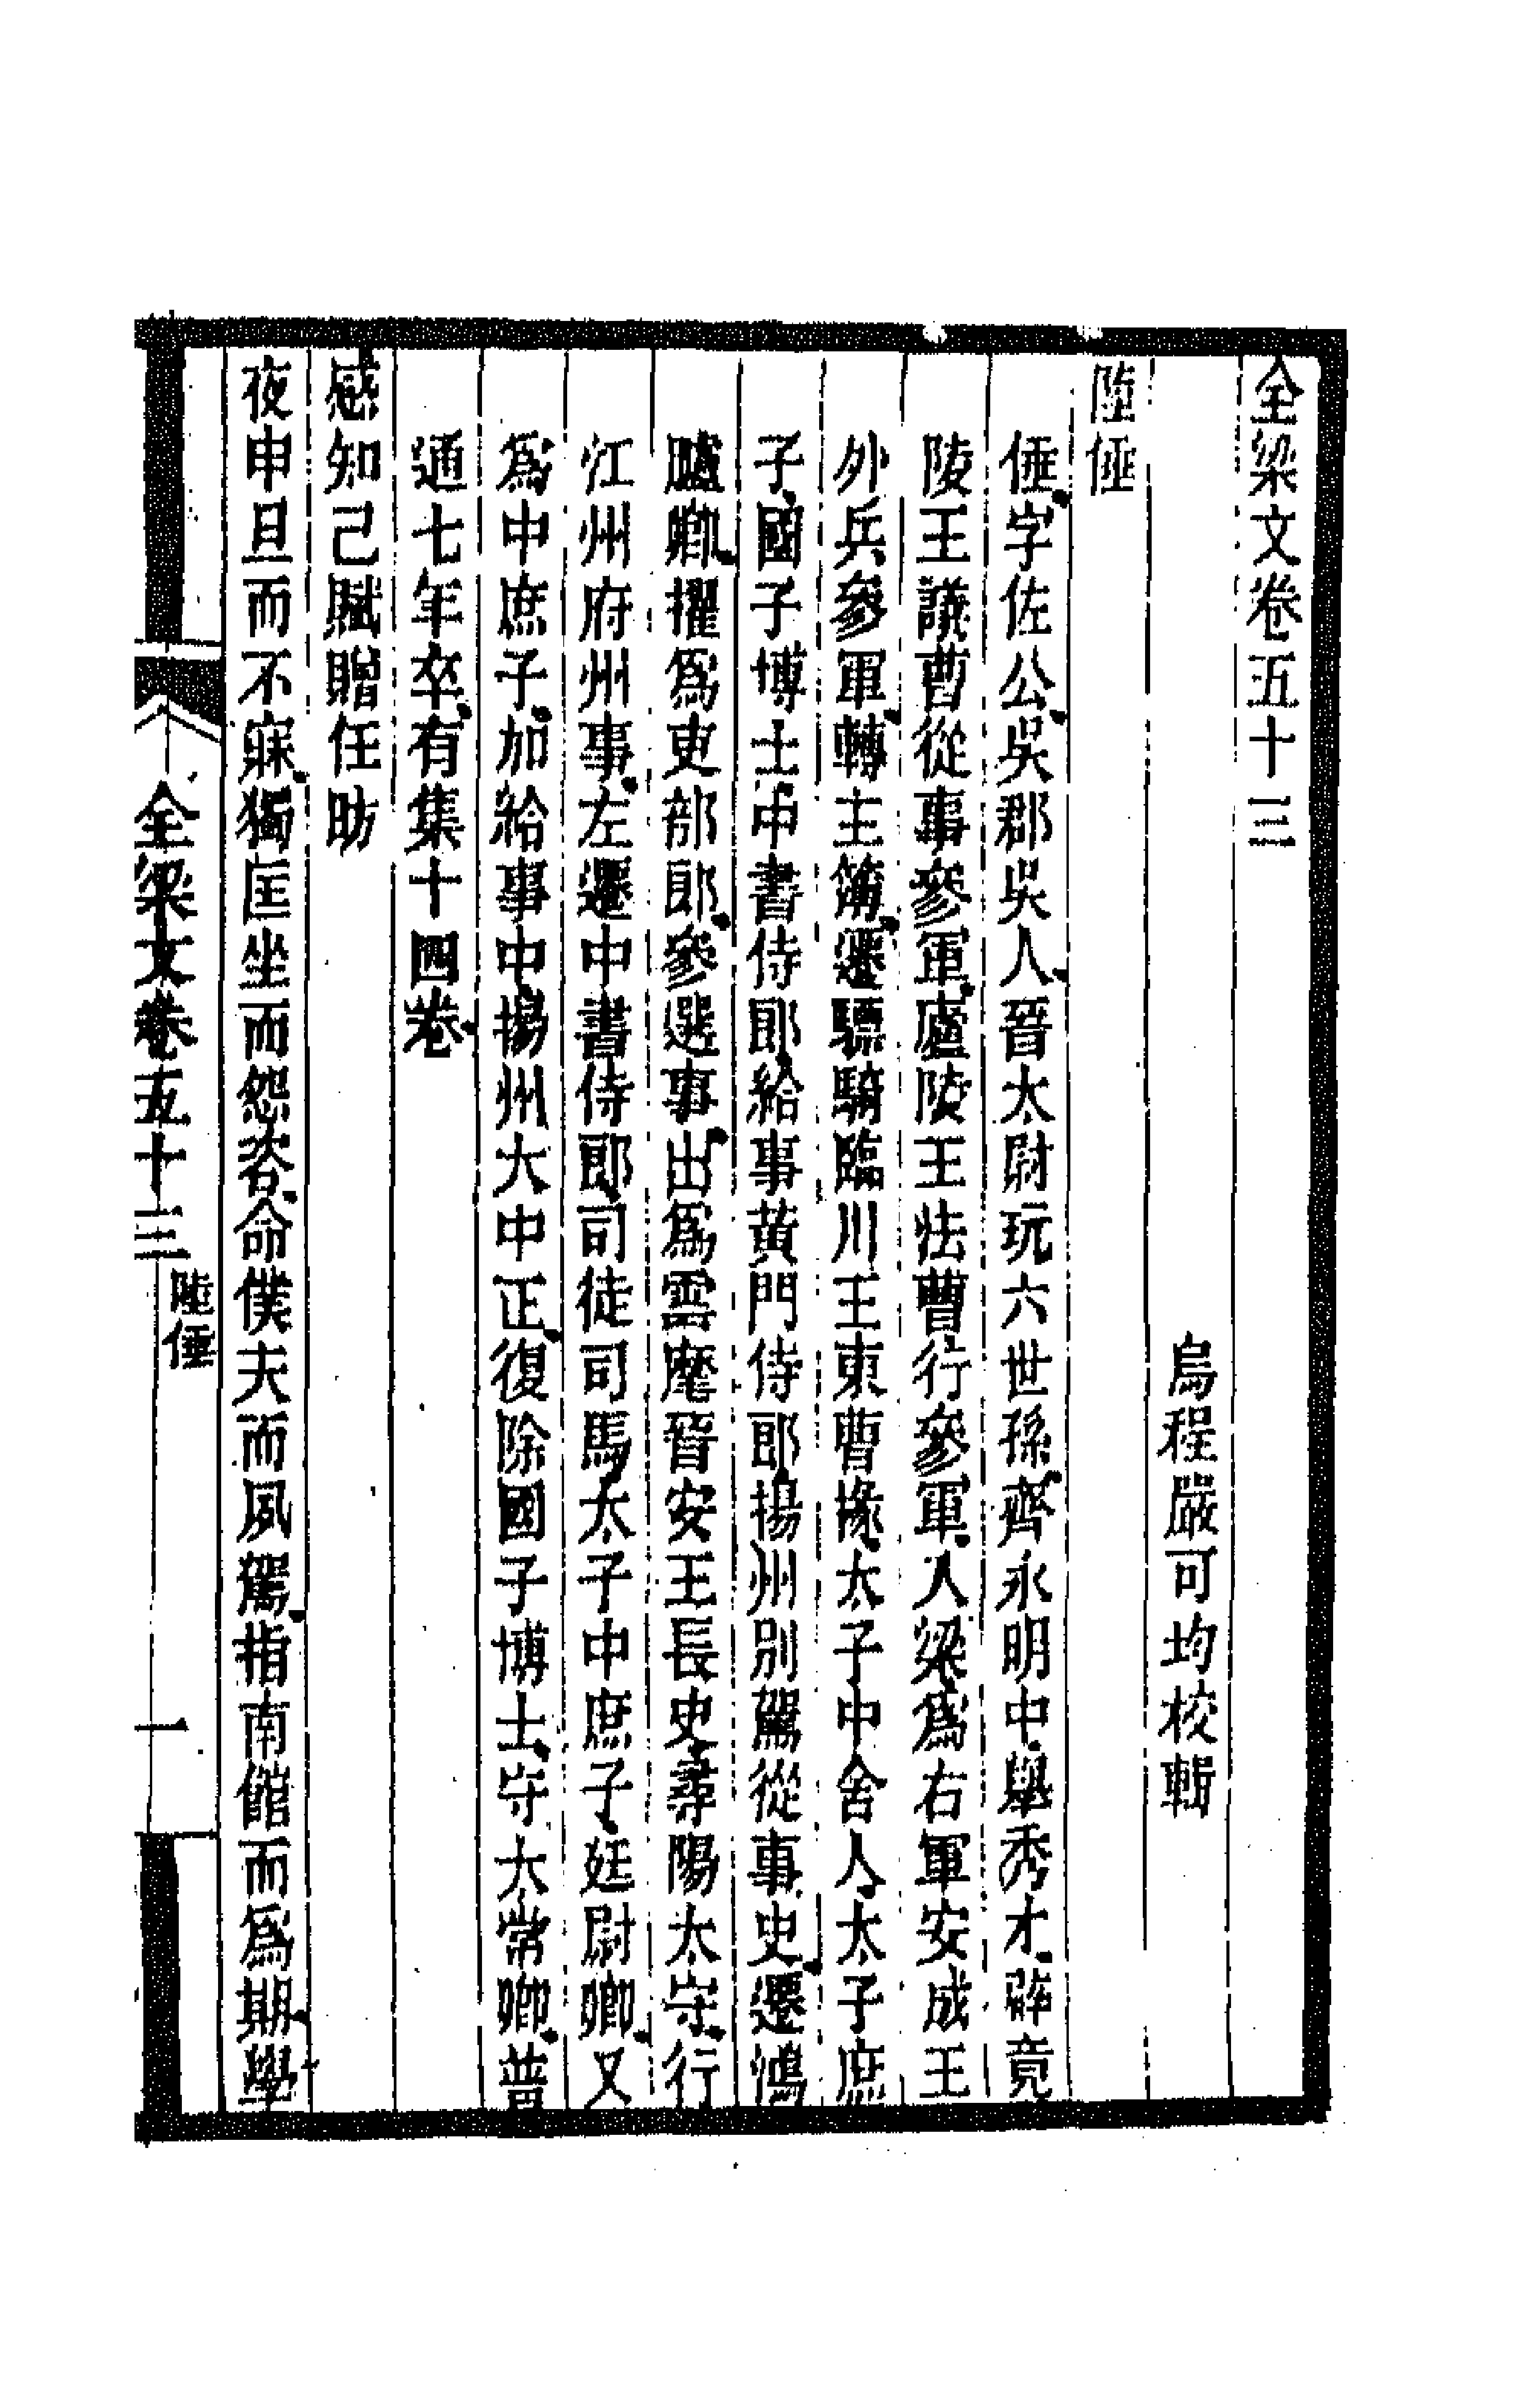 全梁文卷五十三
烏程嚴可均校輯
陸倕
倕字佐公吳郡吳人晉太尉玩六世孫齊永明中舉秀才辟竟
陵王議曹從事參軍廬陵王法曹行參軍入梁爲右軍安成王
外兵參軍轉主簿遷驃騎臨川王東曹掾太子中舍人太子庶
子國子博士中書侍郎給事黃門侍郎揚州別駕從事史遷鴻
臚卿擢爲吏部郎參選事出爲雲麾晉安王長史尋陽太守行
江州府州事左遷中書侍郎司徒司馬太子中庶子廷尉卿又
爲中庶子加給事中揚州大中正復除國子博士守太常卿普
通七年卒有集十四卷
感知己賦贈任昉
夜申旦而不寐獨匡坐而怨咨命僕夫而夙駕指南館而爲期學
全梁文卷五十三 陸倕 一